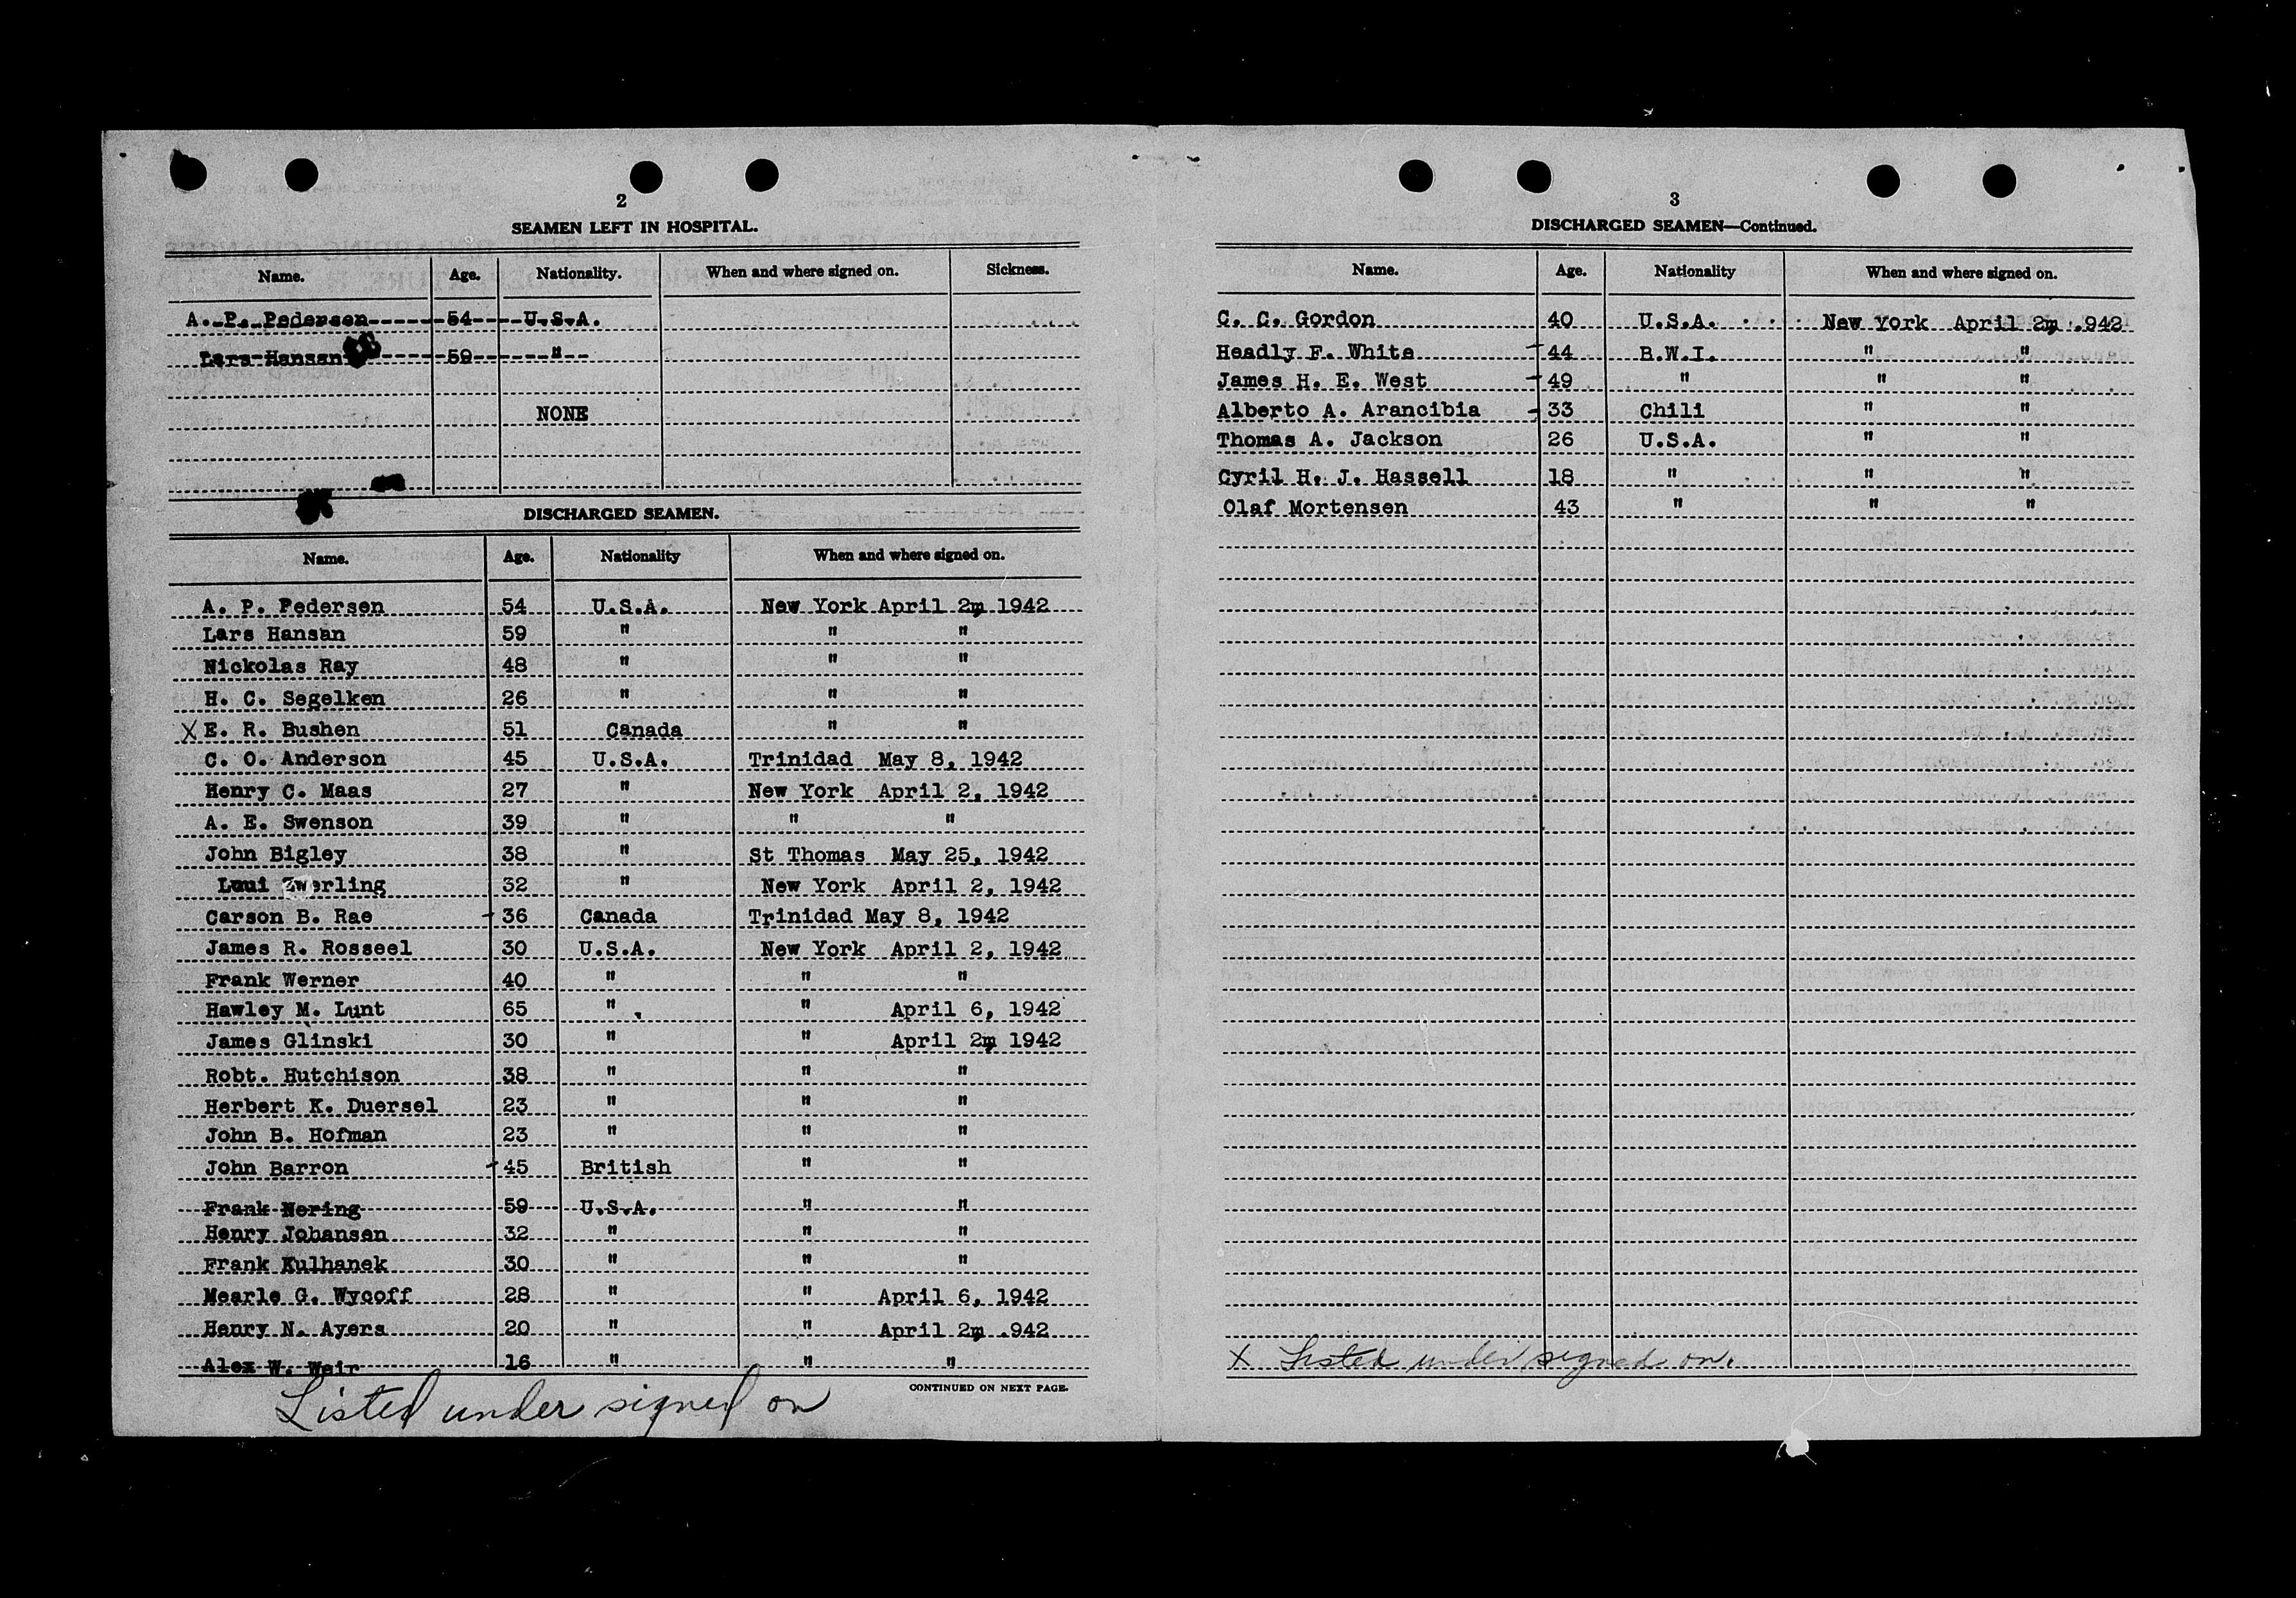 2
SEAMEN LEFT IN HOSPITAL.
Name. Age. Nationality. When and where signed on. Sickness.
A. P. Pedersen 54 U.S.A.
Lars Hansan 59 "
NONE
DISCHARGED SEAMEN.
Name. Age. Nationality When and where signed on.
A. P. Pedersen 54 U.S.A. New York April 2m 1942
Lars Hansan 59 " " "
Nickolas Ray 48 " " "
H. C. Segelken 26 " " "
X E. R. Bushen 51 Canada " "
C. O. Anderson 45 U.S.A. Trinidad May 8, 1942
Henry C. Maas 27 " New York April 2, 1942
A. E. Swenson 39 " " "
John Bigley 38 " St Thomas May 25, 1942
Luui Zwerling 32 " New York April 2, 1942
Carson B. Rae - 36 Canada Trinidad May 8, 1942
James R. Rosseel 30 U.S.A. New York April 2, 1942
Frank Werner 40 " " "
Hawley M. Lunt 65 " " April 6, 1942
James Glinski 30 " " April 2m 1942
Robt. Hutchison 38 " " "
Herbert K. Duersel 23 " " "
John B. Hofman 23 " " "
John Barron - 45 British " "
Frank Nering 59 U.S.A. " "
Henry Johansen 32 " " "
Frank Kulhanek 30 " " "
Mearle G. Wycoff 28 " " April 6, 1942
Henry N. Ayers 20 " " April 2m .942
Alex W. Weir 16 " " "
CONTINUED ON NEXT PAGE.
Listed under signed on
3
DISCHARGED SEAMEN—Continued.
Name. Age. Nationality When and where signed on.
C. C. Gordon 40 U.S.A. New York April 2m .942
Headly F. White - 44 B.W.I. " "
James H. E. West - 49 " " "
Alberto A. Arancibia - 33 Chili " "
Thomas A. Jackson 26 U.S.A. " "
Cyril H. J. Hassell 18 " " "
Olaf Mortensen 43 " " "
X Listed under signed on.